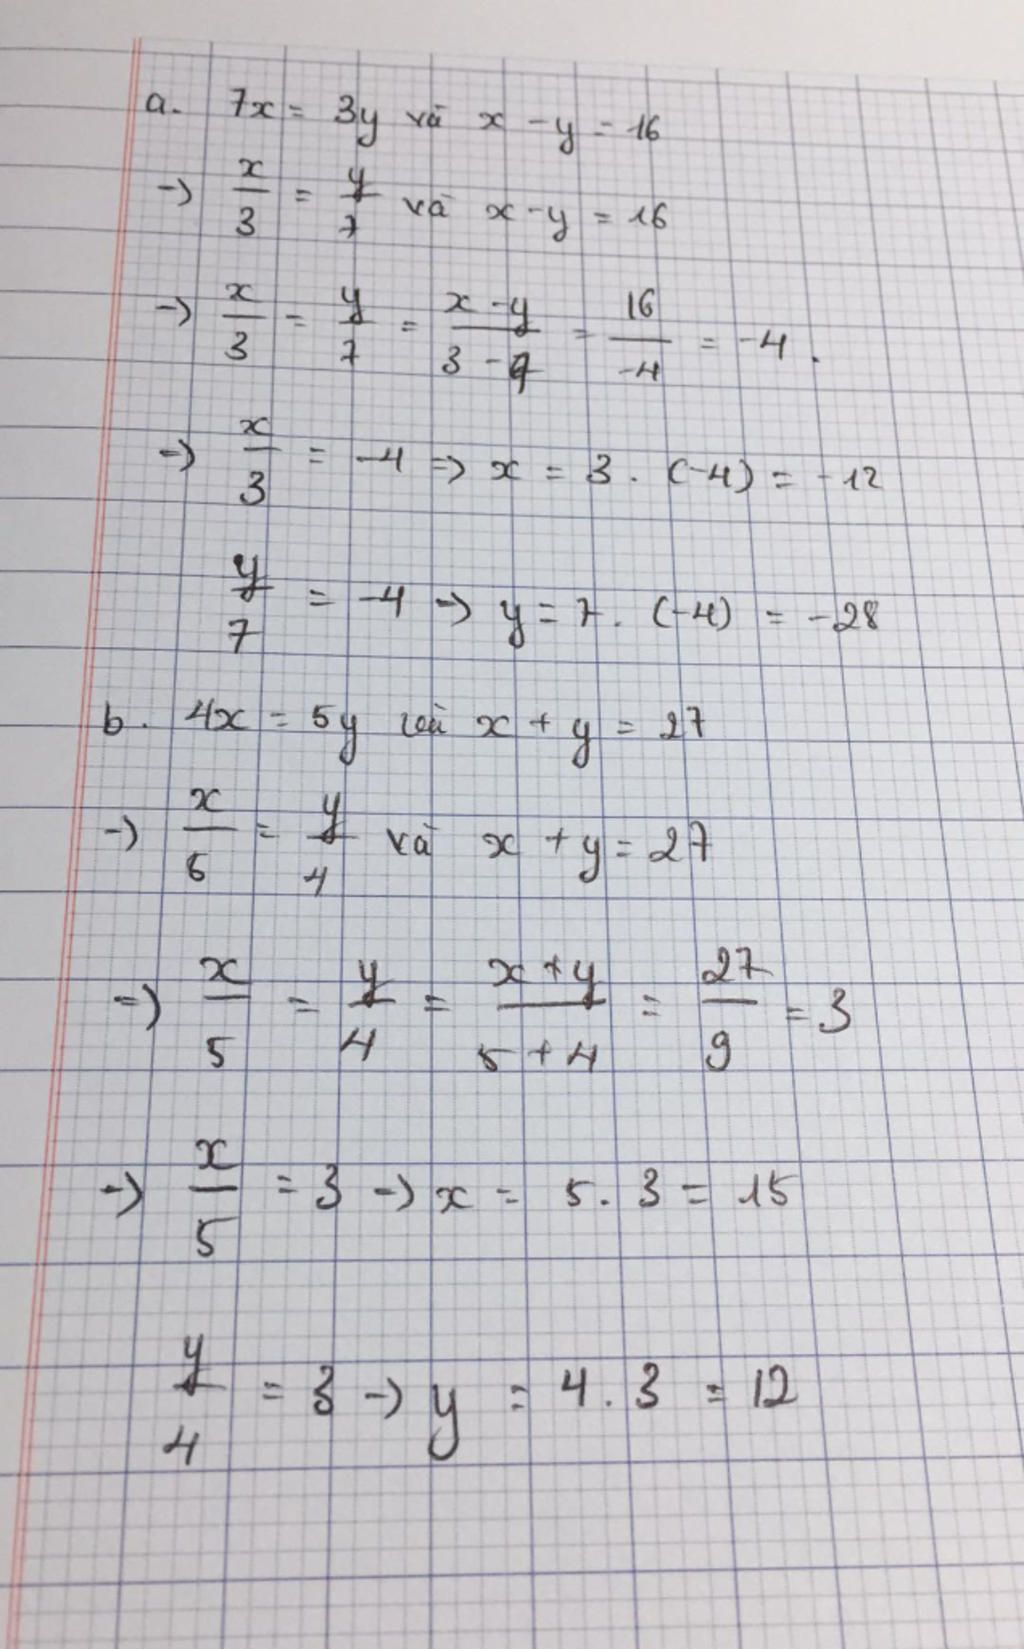 a. 7x = 3y và x - y = 16
-> x/3 = y/7 và x - y = 16
-> x/3 = y/7 = x - y/3 - 7 = 16/-4 = -4.
-> x/3 = -4 => x = 3 . (-4) = -12
y/7 = -4 -> y = 7 . (-4) = -28
b. 4x = 5y và x + y = 27
-> x/5 = y/4 và x + y = 27
=> x/5 = y/4 = x + y/5 + 4 = 27/9 = 3
-> x/5 = 3 -> x = 5 . 3 = 15
y/4 = 3 -> y = 4 . 3 = 12